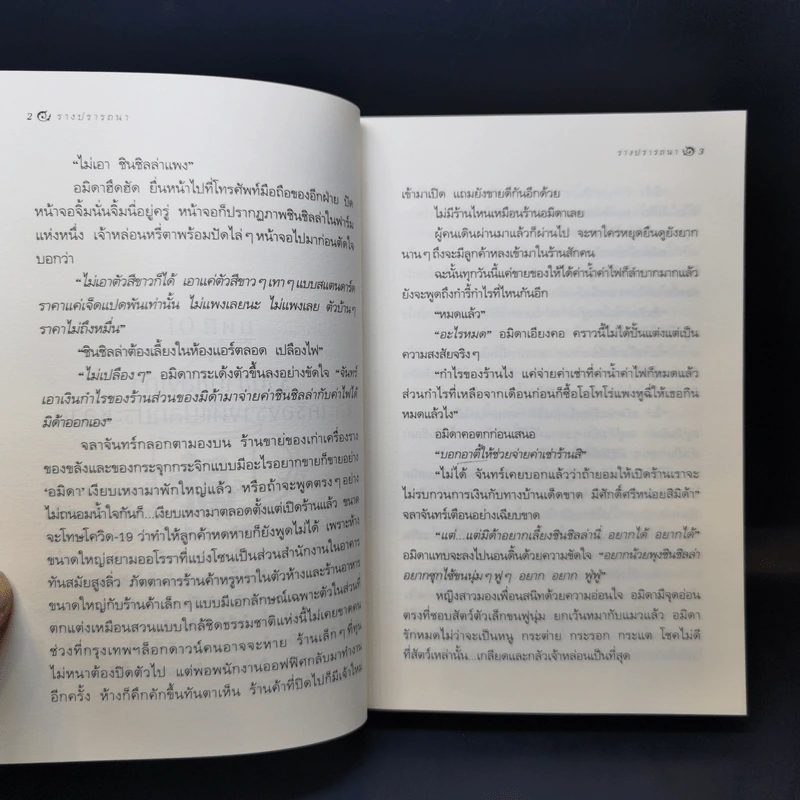 2 รางปรารถนา
“ไม่เอา ชินชิลล่าแพง”
อมิดาฮึดฮัด ยื่นหน้าไปที่โทรศัพท์มือถือของอีกฝ่าย ปัด
หน้าจอจิ้มนั่นจิ้มนี่อยู่ครู่ หน้าจอก็ปรากฏภาพชินชิลล่าในฟาร์ม
แห่งหนึ่ง เจ้าหล่อนหรี่ตาพร้อมปัดไล่ๆ หน้าจอไปมาก่อนตัดใจ
บอกว่า
“ไม่เอาตัวสีขาวก็ได้ เอาแค่ตัวสีขาวๆ เทาๆ แบบสแตนดาร์ด
ราคาแค่เจ็ดแปดพันเท่านั้น ไม่แพงเลยนะ ไม่แพงเลย ตัวบ้านๆ
ราคาไม่ถึงหมื่น”
“ชินชิลล่าต้องเลี้ยงในห้องแอร์ตลอด เปลืองไฟ”
“ไม่เปลืองๆ” อมิดากระเด้งตัวขึ้นลงอย่างขัดใจ “จันทร์
เอาเงินกำไรของร้านส่วนของมิด้ามาจ่ายค่าชินชิลล่ากับค่าไฟได้
มิด้าออกเอง”
จลาจันทร์กลอกตามองบน ร้านขายของเก่าเครื่องราง
ของขลังและของกระจุกกระจิกแบบมีอะไรอยากขายก็ขายอย่าง
‘อมิดา’ เงียบเหงามาพักใหญ่แล้ว หรือถ้าจะพูดตรงๆ อย่าง
ไม่ถนอมน้ำใจกันก็...เงียบเหงามาตลอดตั้งแต่เปิดร้านแล้ว ขนาด
จะโทษโควิด-19 ว่าทำให้ลูกค้าหดหายก็ยังพูดไม่ได้ เพราะห้าง
ขนาดใหญ่สยามออโรราที่แบ่งโซนเป็นส่วนสำนักงานในอาคาร
ทันสมัยสูงลิ่ว ภัตตาคารร้านค้าหรูหราในตัวห้างและร้านอาหาร
ขนาดใหญ่กับร้านค้าเล็กๆ แบบมีเอกลักษณ์เฉพาะตัวในส่วนที่
ตกแต่งเหมือนสวนแบบใกล้ชิดธรรมชาติแห่งนี้ไม่เคยขาดคน
ช่วงที่กรุงเทพฯล็อกดาวน์คนอาจจะหาย ร้านเล็กๆ ที่ทุน
ไม่หนาต้องปิดตัวไป แต่พอพนักงานออฟฟิศกลับมาทำงาน
อีกครั้ง ห้างก็คึกคักขึ้นทันตาเห็น ร้านค้าที่ปิดไปก็มีเจ้าใหม่
รางปรารถนา 3
เข้ามาเปิด แถมยังขายดีกันอีกด้วย
ไม่มีร้านไหนเหมือนร้านอมิดาเลย
ผู้คนเดินผ่านมาแล้วก็ผ่านไป จะหาใครหยุดยืนดูยังยาก
นานๆ ถึงจะมีลูกค้าหลงเข้ามาในร้านสักคน
ฉะนั้นทุกวันนี้แค่ขายของให้ได้ค่าน้ำค่าไฟก็ลำบากมากแล้ว
ยังจะพูดถึงกำรี้กำไรที่ไหนกันอีก
“หมดแล้ว”
“อะไรหมด” อมิดาเอียงคอ คราวนี้ไม่ได้ปั้นแต่งแต่เป็น
ความสงสัยจริงๆ
“กำไรของร้านไง แค่จ่ายค่าเช่าที่ค่าน้ำค่าไฟก็หมดแล้ว
ส่วนกำไรที่เหลือจากเดือนก่อนก็ซื้อโอโทโร่แพงหูฉี่ให้เธอกิน
หมดแล้วไง”
อมิดาคอตกก่อนเสนอ
“บอกอาตี๋ให้ช่วยจ่ายค่าเช่าร้านสิ”
“ไม่ได้ จันทร์เคยบอกแล้วว่าถ้ายอมให้เปิดร้านเราจะ
ไม่รบกวนการเงินกับทางบ้านเด็ดขาด มีศักดิ์ศรีหน่อยสิมิด้า”
จลาจันทร์เตือนอย่างเฉียบขาด
“แต่...แต่มิด้าอยากเลี้ยงชินชิลล่านี่ อยากได้ อยากได้”
อมิดาแทบจะลงไปนอนดิ้นด้วยความขัดใจ “อยากน้วยพุงชินชิลล่า
อยากซุกไซ้ขนนุ่มๆ ฟูๆ อยาก อยาก ฟู่ฟู่”
หญิงสาวมองเพื่อนสนิทด้วยความอ่อนใจ อมิดามีจุดอ่อน
ตรงที่ชอบสัตว์ตัวเล็กขนฟูนุ่ม ยกเว้นหมากับแมวแล้ว อมิดา
รักหมดไม่ว่าจะเป็นหนู กระต่าย กระรอก กระแต โชคไม่ดี
ที่สัตว์เหล่านั้น...เกลียดและกลัวเจ้าหล่อนเป็นที่สุด